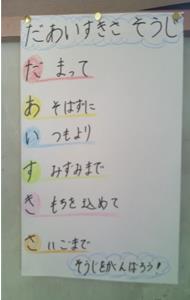 だあいすきさ そうじ
だ まって
あ そばずに
い つもより
す みずみまで
き もちを込めて
さ いごまで
そうじをがんばろう!